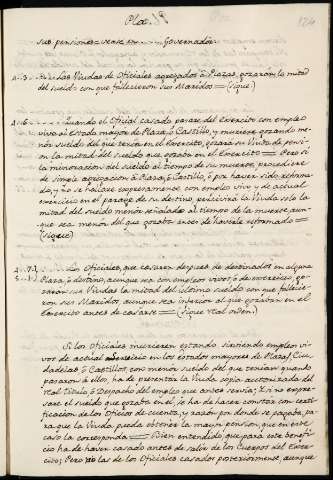 Plaz.
124
sus pensiones = vease en ...... Governador.
4..3. ... Las Viudas de Oficiales agregados à Plazas, gozarán la mitad
del sueldo con que fallecieron sus Maridos = (sigue)
4..6. ... Quando el Oficial casado pasare del Exercito con empleo
vivo al estado mayor de Plaza, ò Castillo, y muriere gozando me-
nor sueldo del que tenia en el Exercito, gozará su Viuda de pensi-
on la mitad del sueldo que gozaba en el Exercito = Pero si
la minoracion del sueldo al tiempo de su muerte, procediere
de simple agregacion à Plaza, ò Castillo, ò por haver sido reforma-
do, y no se hallare expresamente con empleo vivo y de actual
exercicio en el parage de su destino, percivirá la Viuda solo la
mitad del sueldo menor señalado al tiempo de la muerte, aun-
que sea menor del que gozaba antes de haverle reformado =
(sigue)
4..7. Los Oficiales, que casaren despues de destinados en alguna
Plaza, ò destino, aunque sea con empleos vivos, ò de exercicio, go-
zarán sus Viudas la mitad del ultimo sueldo con que fallecie-
ron sus Maridos, aunque sea inferior al que gozaban en el
Exercito antes de casarse = (sigue Real orden.)
Si los Oficiales murieren estando sirviendo empleos vi-
vos de actual exercicio en los estados mayores de Plazas, Ciu-
dadelas, ò Castillos, con menor sueldo del que tenian quando
pasaron à ellos, ha de presentar la Viuda copia autorizada del
real titulo ò Despacho del empleo que antes servia; y si no expre-
sare el sueldo que gozaba en èl, se ha de hacer constar con certi-
ficacion de los Oficios de cuenta, y razon por donde se pagaba, pa-
ra que la Viuda pueda obtener la mayor pension, que en este
caso la corresponda = Bien entendido, que para este benefi-
cio ha de haver casado antes de salir de los Cuerpos del Exer-
cito; Pero à las de los Oficiales casados posteriormente, aunque